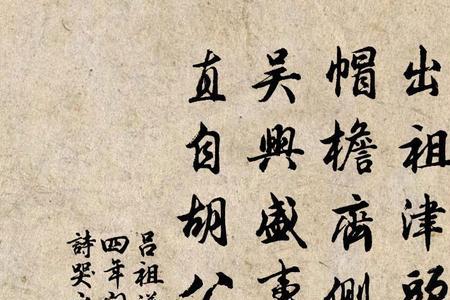 出祖津頭
帽檐齊側
吳興盛事
直自胡公
呂祖
四年
詩哭